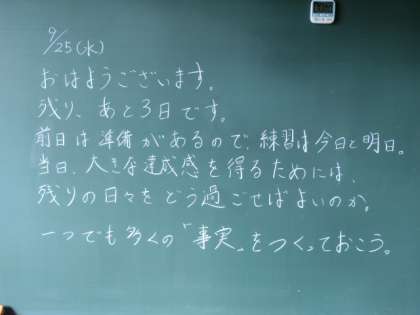 9/25(水)
おはようございます。
残り、あと3日です。
前日は準備があるので、練習は今日と明日。
当日、大きな達成感を得るためには、
残りの日々をどう過ごせばよいのか。
一つでも多くの「事実」をつくっておこう。